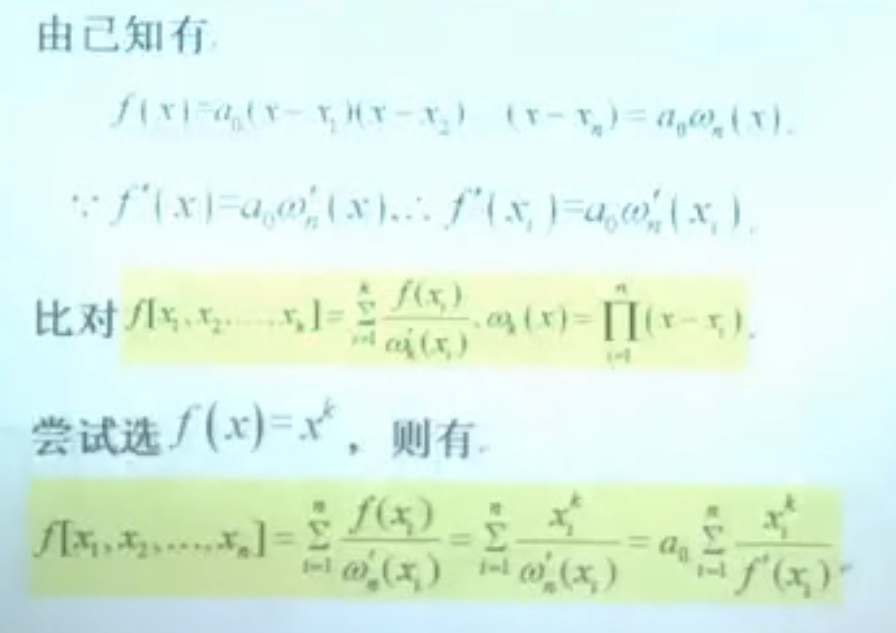 由已知有
f(x)=a₀(x-x₁)(x-x₂) (x-xₙ)=a₀ωₙ(x).
∵ f'(x)=a₀ωₙ'(x),∴ f'(xᵢ)=a₀ωₙ'(xᵢ).
比对 f[x₁,x₂,...,xₖ]=∑_{i=1}^{k} f(xᵢ)/ωₖ'(xᵢ), ωₖ(x)=∏_{i=1}^{n}(x-xᵢ).
尝试选 f(x)=xᵏ，则有
f[x₁,x₂,...,xₙ]=∑_{i=1}^{n} f(xᵢ)/ωₙ'(xᵢ)=∑_{i=1}^{n} xᵢᵏ/ωₙ'(xᵢ)=a₀∑_{i=1}^{n} xᵢᵏ/f'(xᵢ).